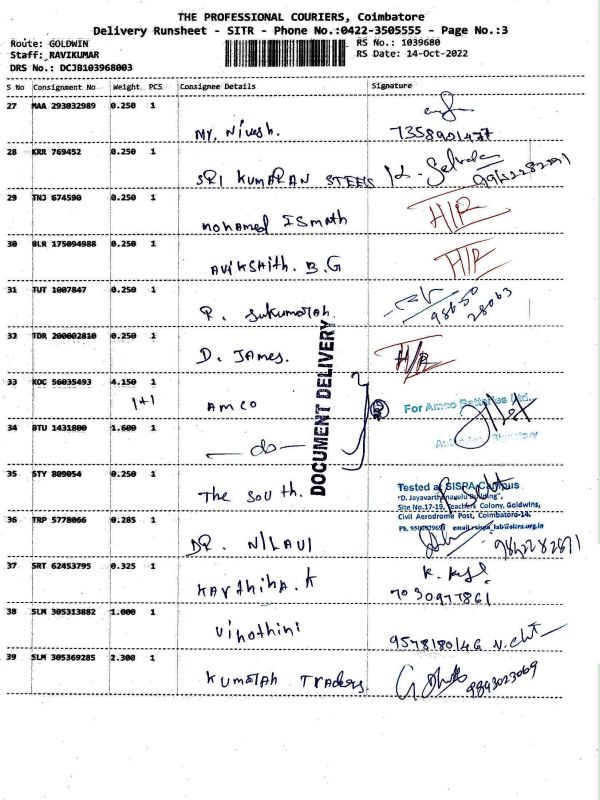 THE PROFESSIONAL COURIERS, Coimbatore
Delivery Runsheet - SITR - Phone No.:0422-3505555 - Page No.:3
Route: GOLDWIN RS No.: 1039680
Staff: RAVIKUMAR RS Date: 14-Oct-2022
DRS No.: DCJB103968003
S No Consignment No Weight PCS Consignee Details Signature
27 MAA 293032989 0.250 1
Mr. Nivesh.
28 KRR 769452 0.250 1
SRI KUMARAN STEELS
29 TNJ 674590 0.250 1
mohamed ISmath H/R
30 BLR 175094988 0.250 1
Avikshith. B.G H/R
31 TUT 1007847 0.250 1
R. Sukumarah. 98650 28063
32 TDR 200002810 0.250 1
D. James. H/R
DOCUMENT DELIVERY
33 KOC 56035493 4.150 1
1+1 AMCO For Amco Batteries Ltd.
34 BTU 1431800 1.600 1
-do- Signatory
35 STY 809054 0.250 1
The south.
Tested at SISPA Campus
Site No.17-19, Teachers Colony, Goldwins,
Civil Aerodrome Post, Coimbatore-14.
36 TRP 5778066 0.285 1
DR. NILAVI 9842282871
37 SRT 62453795 0.325 1
Karthika. K 7030977861
38 SLM 305313882 1.000 1
Vinothini 9578180146
39 SLM 305369285 2.300 1
Kumarah Traders. 9893023069